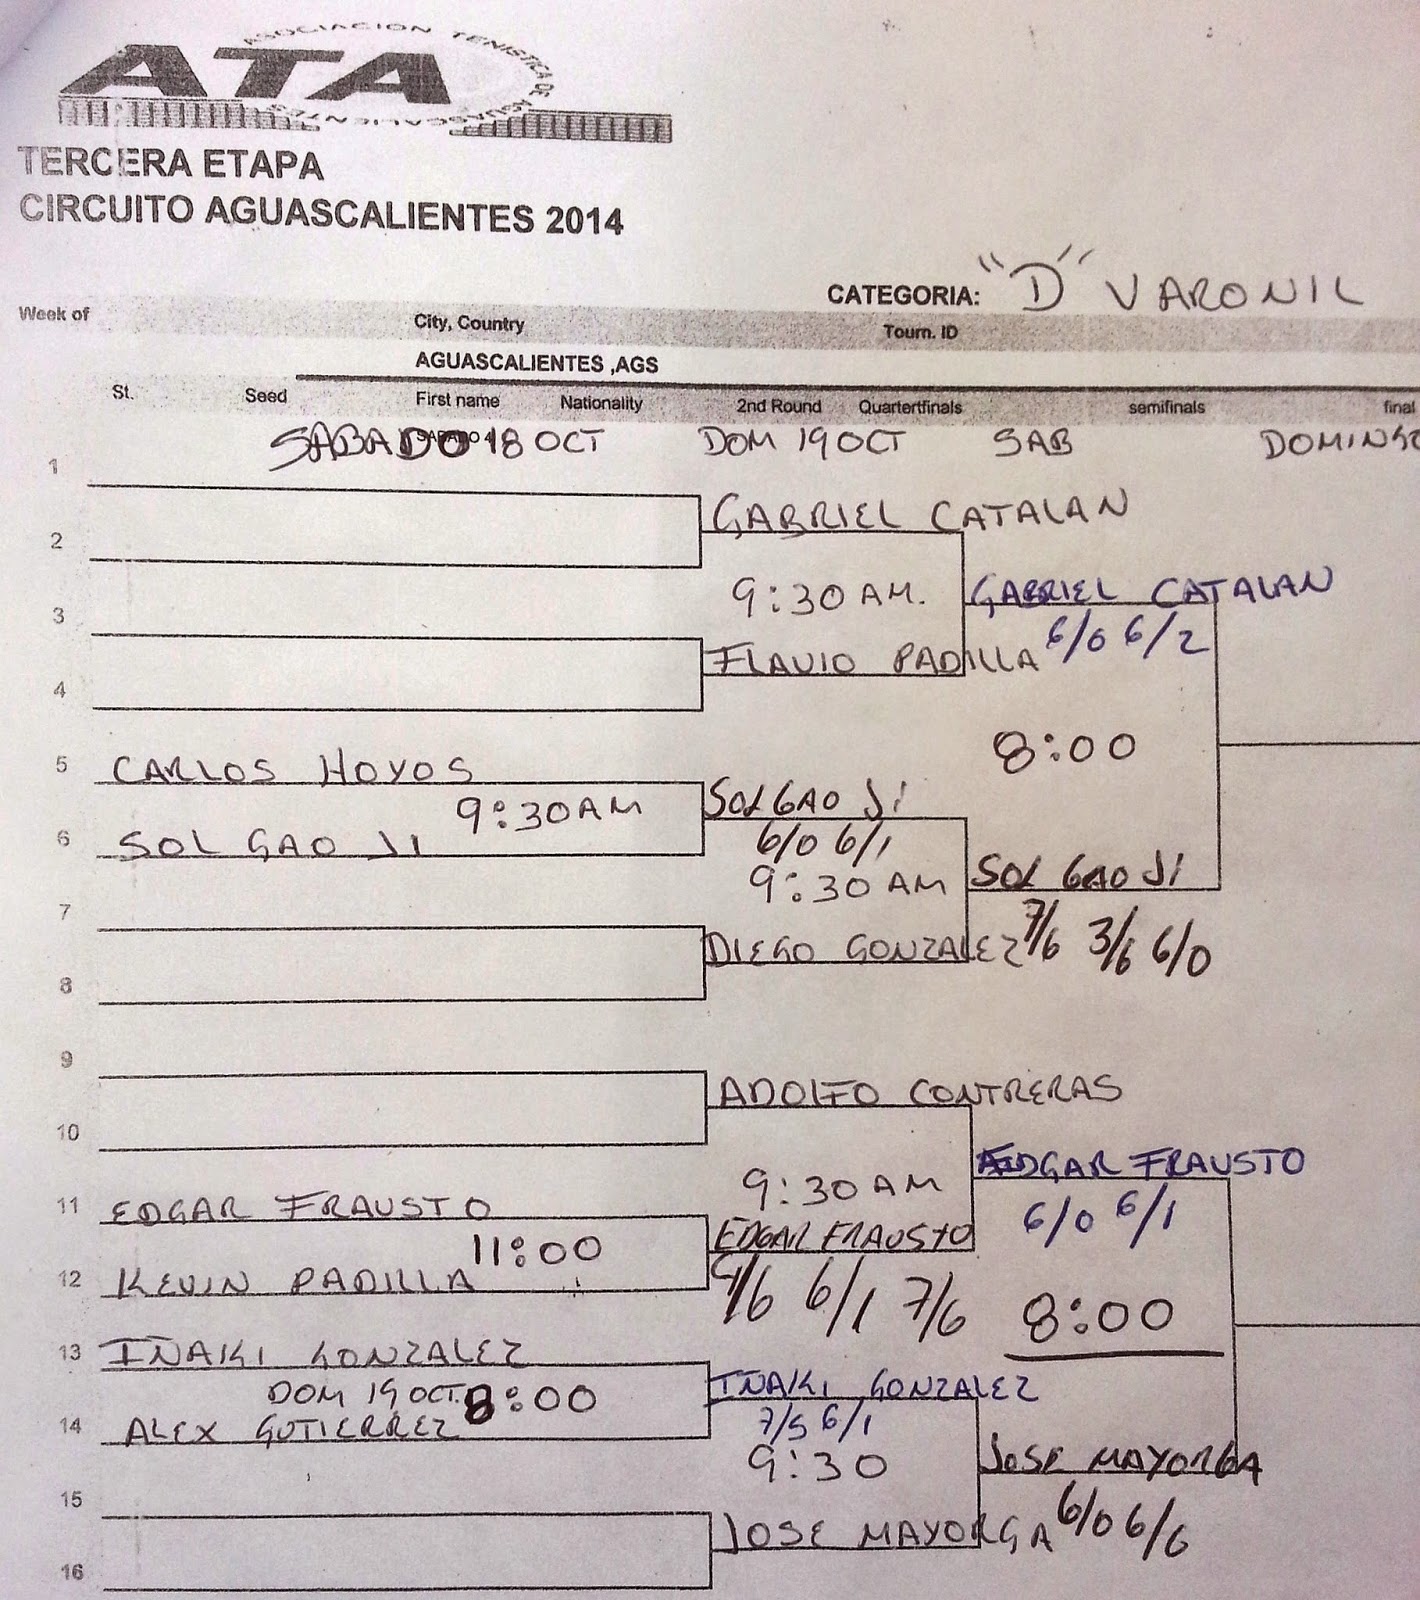 ASOCIACION TENISTICA DE AGUASCALIENTES
ATA
TERCERA ETAPA
CIRCUITO AGUASCALIENTES 2014
CATEGORIA: "D" VARONIL
Week of City, Country Tourn. ID
AGUASCALIENTES ,AGS
St. Seed First name Nationality 2nd Round Quartertfinals semifinals final
SABADO 18 OCT DOM 19 OCT SAB DOMINGO
1
GABRIEL CATALAN
2
9:30 AM. GABRIEL CATALAN
3
6/0 6/2
FLAVIO PADILLA
4
8:00
5 CARLOS HOYOS
9:30 AM SOL GAO JI
6 SOL GAO JI 6/0 6/1
9:30 AM SOL GAO JI
7
DIEGO GONZALEZ 7/6 3/6 6/0
8
9
ADOLFO CONTRERAS
10
9:30 AM EDGAR FRAUSTO
11 EDGAR FRAUSTO 6/0 6/1
11:00 EDGAR FRAUSTO
12 KEVIN PADILLA 4/6 6/1 7/6
8:00
13 IÑAKI GONZALEZ
DOM 19 OCT. 8:00 IÑAKI GONZALEZ
14 ALEX GUTIERREZ 7/5 6/1
9:30 JOSE MAYORGA
15
JOSE MAYORGA 6/0 6/6
16